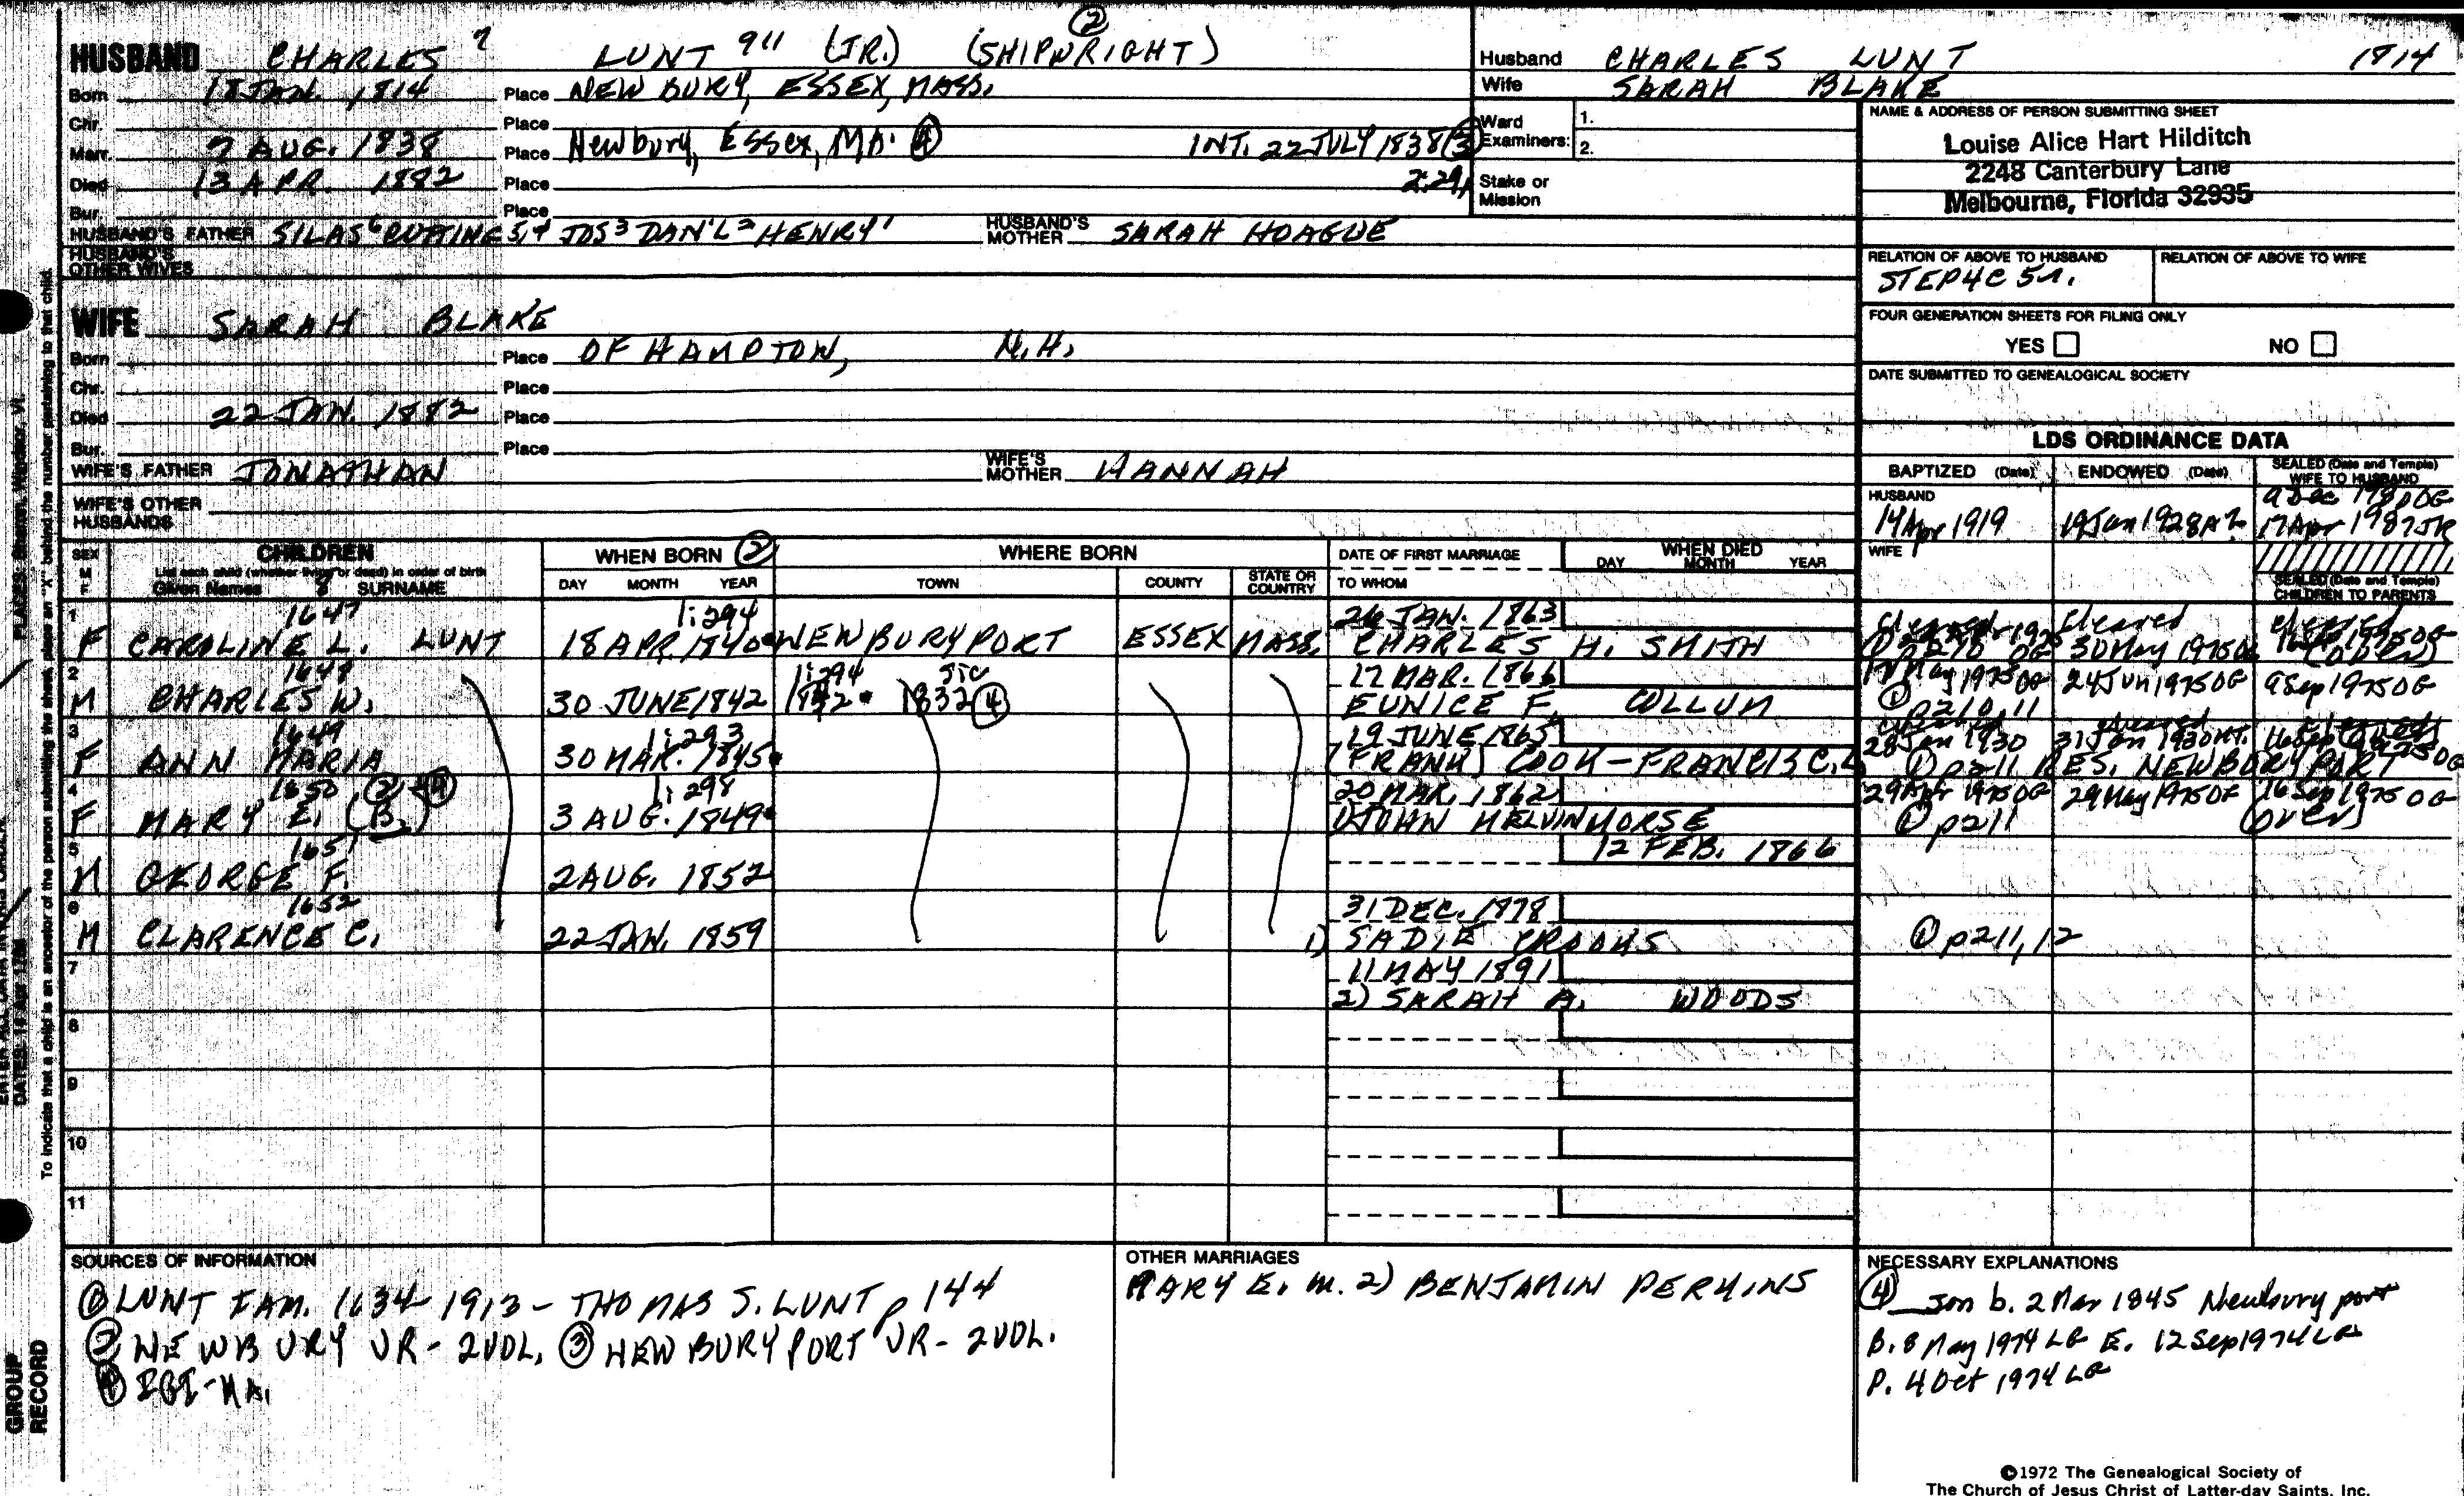 HUSBAND CHARLES 7 LUNT 911 (JR.) (SHIPWRIGHT) ②
Born 18 JAN. 1814 Place NEWBURY, ESSEX, MASS.
Chr. Place
Marr. 7 AUG. 1838 Place Newbury, Essex, MA. ④ INT. 22 JULY 1838 ③
Died 13 APR. 1882 Place 2:291
Bur. Place
HUSBAND'S FATHER SILAS 6 CUTTING 5,4 JOS 3 DAN'L 2 HENRY 1 HUSBAND'S MOTHER SARAH HOAGUE
HUSBAND'S OTHER WIVES
Husband CHARLES LUNT 1814
Wife SARAH BLAKE
Ward Examiners: 1.
2.
Stake or Mission
NAME & ADDRESS OF PERSON SUBMITTING SHEET
Louise Alice Hart Hilditch
2248 Canterbury Lane
Melbourne, Florida 32935
RELATION OF ABOVE TO HUSBAND RELATION OF ABOVE TO WIFE
STEP4C 5r.
FOUR GENERATION SHEETS FOR FILING ONLY
YES NO
DATE SUBMITTED TO GENEALOGICAL SOCIETY
WIFE SARAH BLAKE
Born Place OF HAMPTON, N.H.
Chr. Place
Died 22 JAN. 1882 Place
Bur. Place
WIFE'S FATHER JONATHAN WIFE'S MOTHER HANNAH
WIFE'S OTHER HUSBANDS
LDS ORDINANCE DATA
BAPTIZED (Date) ENDOWED (Date) SEALED (Date and Temple) WIFE TO HUSBAND
HUSBAND
14 Apr 1919 19 Jan 1928 AZ 17 Apr 1987 JR
WIFE
SEALED (Date and Temple) CHILDREN TO PARENTS
SEX M F CHILDREN WHEN BORN ② WHERE BORN DATE OF FIRST MARRIAGE WHEN DIED
List each child (whether living or dead) in order of birth
Given Names 8 SURNAME DAY MONTH YEAR TOWN COUNTY STATE OR COUNTRY TO WHOM DAY MONTH YEAR
1 1647 1:294 26 JAN. 1863 cleared cleared cleared
F CAROLINE L. LUNT 18 APR. 1840 NEWBURYPORT ESSEX MASS. CHARLES H. SMITH 30 May 1975 OG (OVER)
2 1648 1:294 sic 17 MAR. 1866
M CHARLES W. 30 JUNE 1842 1842 1832 ④ EUNICE F. COLLUM 24 Jun 1975 OG 9 Sep 1975 OG
① p210,11
3 1649 1:293 19 JUNE 1865 cleared
F ANN MARIA 30 MAR. 1845 (FRANK) COOK - FRANCIS C.L 28 Jan 1930 31 Jan 1930
① p211 RES. NEWBURYPORT
4 1650 ②+④ 1:298 20 MAR. 1862 29 Apr 1975 OG 29 May 1975 OG 16 Sep 1975 OG
F MARY E. (B.) 3 AUG. 1849 1) JOHN MELVIN MORSE ① p211 (over)
5 1651 12 FEB. 1866
M GEORGE F. 2 AUG. 1852
6 1652 31 DEC. 1878
M CLARENCE C. 22 JAN. 1859 1) SADIE CROOKS ① p211,12
7 11 MAY 1891
2) SARAH A. WOODS
8
9
10
11
SOURCES OF INFORMATION
① LUNT FAM. 1634-1913 - THOMAS S. LUNT p 144
② NEWBURY VR - 2 VOL. ③ NEWBURYPORT VR - 2 VOL.
④ IGI - MA.
OTHER MARRIAGES
MARY E. m. 2) BENJAMIN PERKINS
NECESSARY EXPLANATIONS
④ Son b. 2 Mar 1845 Newburyport
B. 8 May 1974 LG E. 12 Sep 1974 LG
P. 4 Oct 1974 LG
©1972 The Genealogical Society of
The Church of Jesus Christ of Latter-day Saints, Inc.
To indicate that a child is an ancestor of the person submitting the sheet, place an "X" behind the number pertaining to that child.
PLACES: Sharon, Windsor, Vt.
DATES: 14 Apr 1794
GROUP RECORD